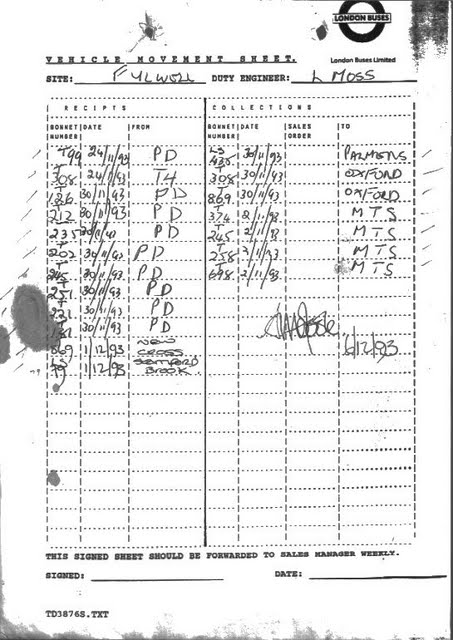 LONDON BUSES
London Buses Limited
VEHICLE MOVEMENT SHEET.
SITE: FULWELL DUTY ENGINEER: L MOSS
RECEIPTS COLLECTIONS
BONNET NUMBER DATE FROM BONNET NUMBER DATE SALES ORDER TO
T99 24/11/93 PD LS 438 30/11/93 PALMERS
T 308 24/11/93 T4 T 308 30/11/93 OXFORD
T 126 30/11/93 PD T 869 30/11/93 OXFORD
T 212 30/11/93 PD T 374 2/11/93 MTS
T 235 30/11/93 PD T 245 2/11/93 MTS
T 202 30/11/93 PD T 258 2/11/93 MTS
T 245 30/11/93 PD T 698 2/11/93 MTS
T 251 30/11/93 PD
T 221 30/11/93 PD
T 30/11/93 PD
869 1/12/93 NEW CROSS
1/12/93 STAMFORD BROOK
6/12/93
THIS SIGNED SHEET SHOULD BE FORWARDED TO SALES MANAGER WEEKLY.
SIGNED: DATE:
TD3876S.TXT